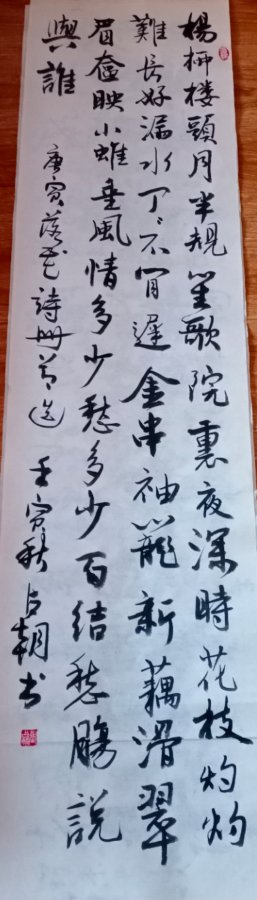 楊柳楼頭月半規笙歌院裏夜深時花枝灼灼
難長好漏水丁丁不肯遲金串袖籠新藕滑翠
眉奩映小蛾垂風情多少愁多少百結愁腸說
與誰
唐寅落花詩冊節選 壬寅秋 占朝书